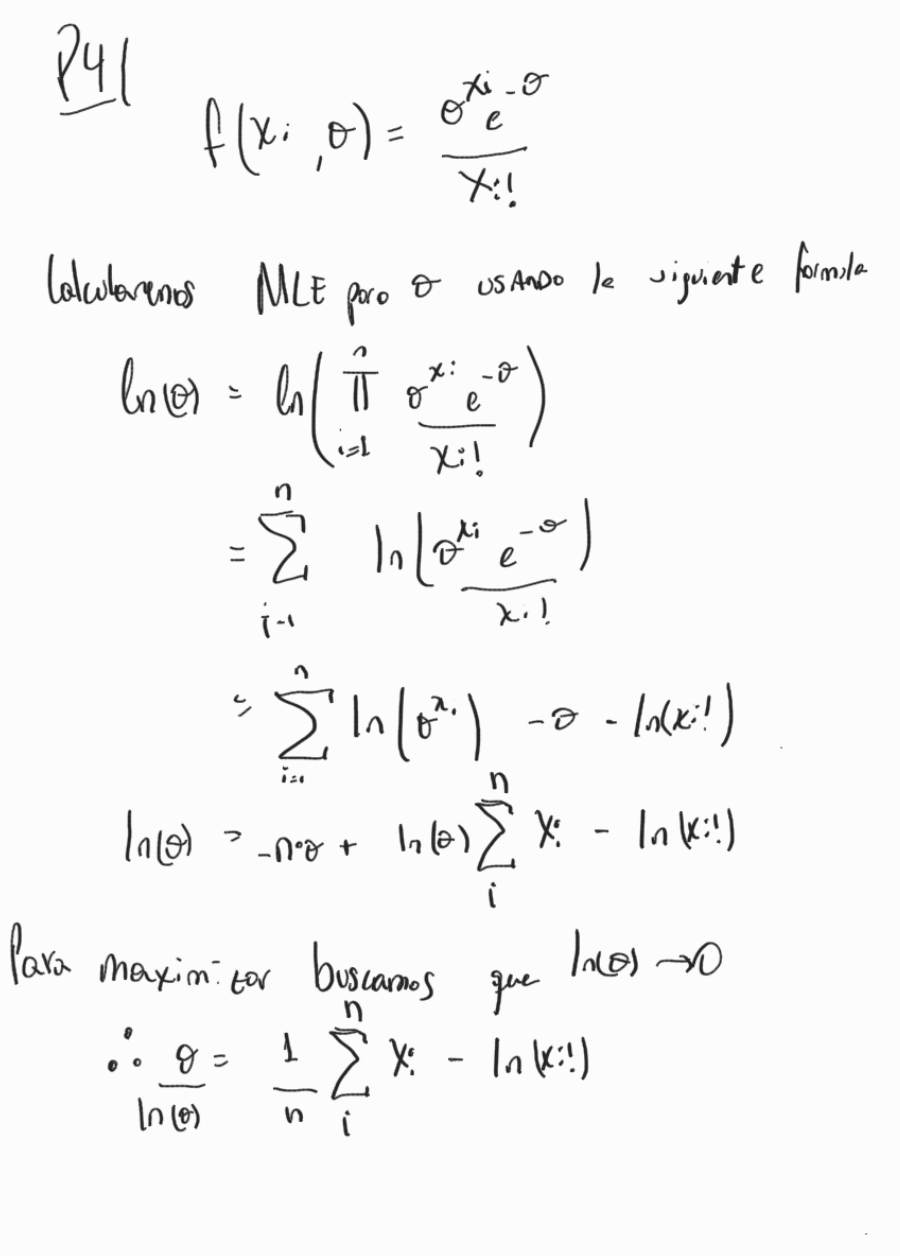 P4|
f(xi, θ) = θ^xi e^-θ / xi!
Calcularemos MLE para θ usando la siguiente formula
ln(θ) = ln( ∏_{i=1}^{n} θ^xi e^-θ / xi! )
= ∑_{i=1}^{n} ln( θ^xi e^-θ / xi! )
= ∑_{i=1}^{n} ln(θ^xi) - θ - ln(xi!)
ln(θ) = -n·θ + ln(θ) ∑_{i}^{n} xi - ln(xi!)
Para maximizar buscamos que ln(θ) → 0
∴ θ / ln(θ) = 1/n ∑_{i}^{n} xi - ln(xi!)